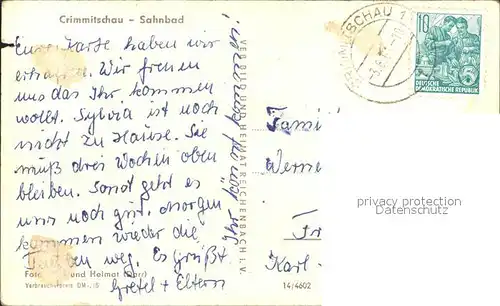 Crimmitschau - Sahnbad
Eure Karte haben wir
erhalten. Wir freuen
uns das Ihr kommen
wollt. Sylvia ist noch
nicht zu Hause. Sie
muß drei Wochen oben
bleiben. Sonst geht es
uns noch gut. Morgen
kommen wieder die
weg. Es Grüßt
Gretel + Eltern
Foto und Heimat (Darr)
Verbraucherpreis DM -,15
VERB BILD UND HEIMAT REICHENBACH I. V.
14/4602
CRIMMITSCHAU 1
10
DEUTSCHE
DEMOKRATISCHE REPUBLIK
Fami
Werne
Karl-
privacy protection
Datenschutz